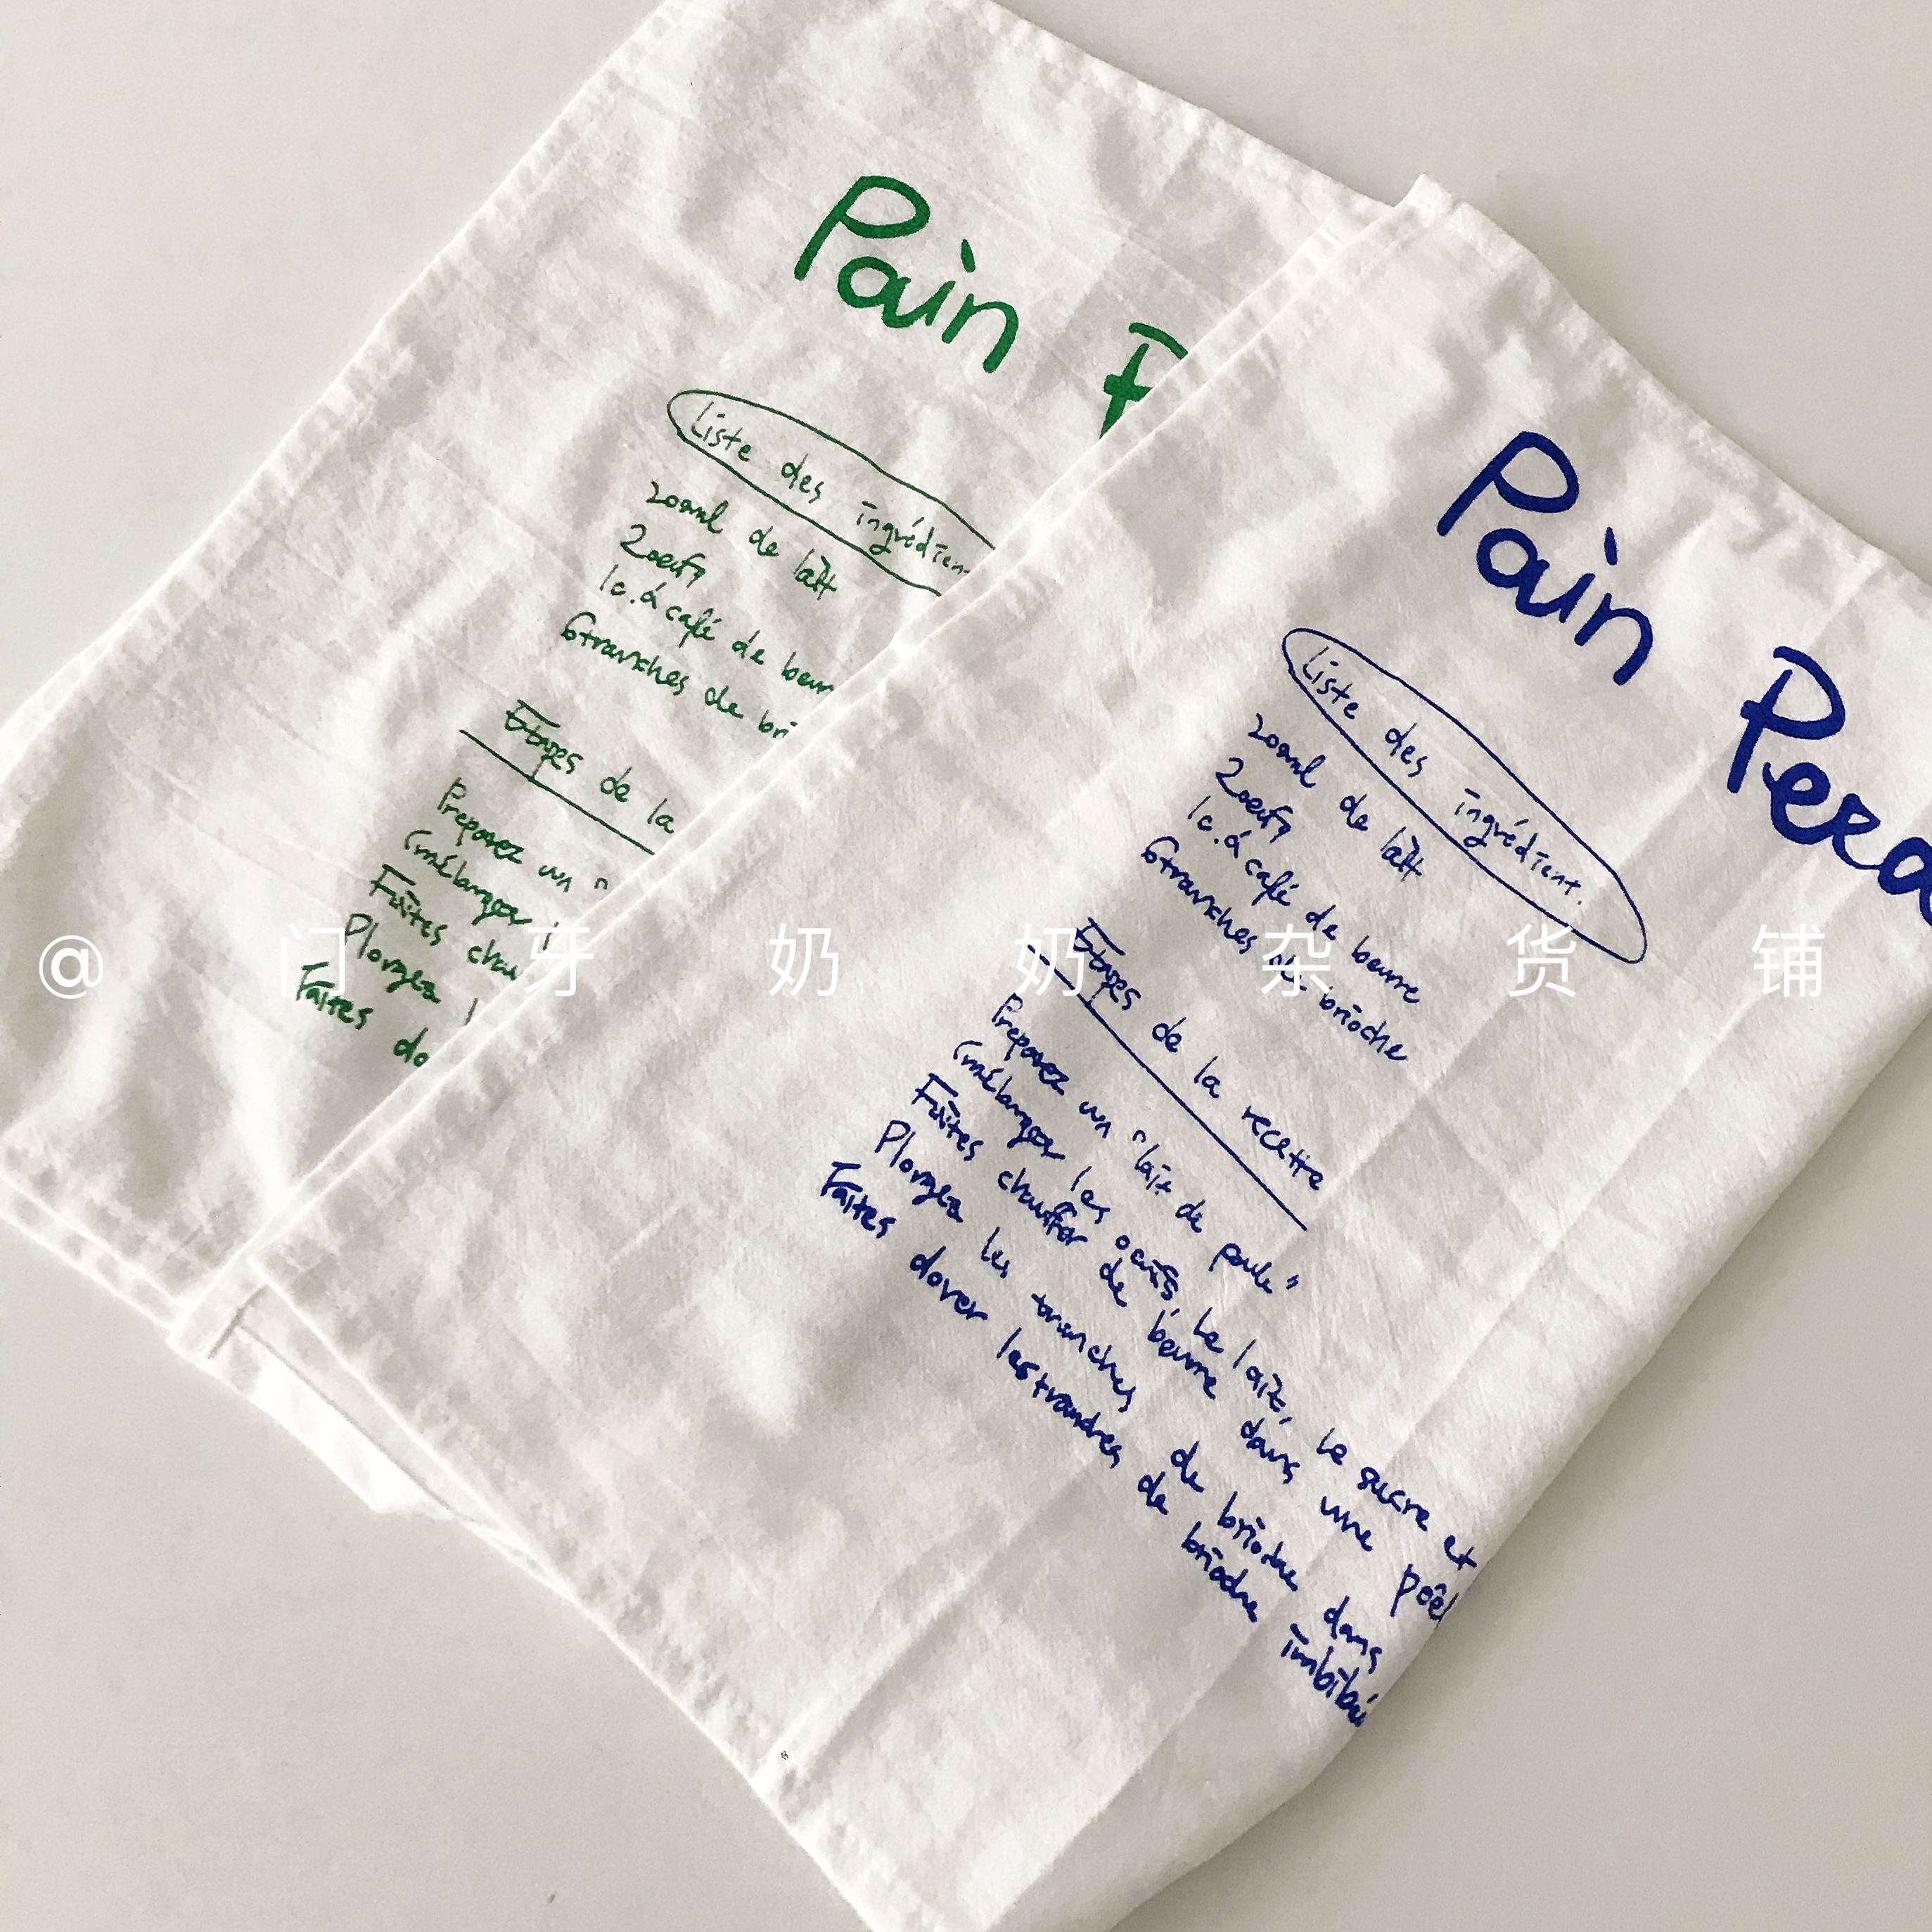 Pain F
Liste des ingrédien
200ml de laît
2oeufs
1c.á café de beur
6tranches de bri
Etapes de la
Preparez un "
(mélanger l
Faîtes chau
Plongez l
Faites do
Pain Perd
Liste des ingrédient.
200ml de laît
2oeufs
1c.á café de beurre
6tranches de brioche
Etapes de la recette
Preparez un "lait de poule"
(mélanger les oeufs, le lait, le sucre et
Faîtes chauffer de beurre dans une poêl
Plongez les tranches de brioche dans
Faites dorer les tranches de brioche imbibé
@门牙奶奶杂货铺